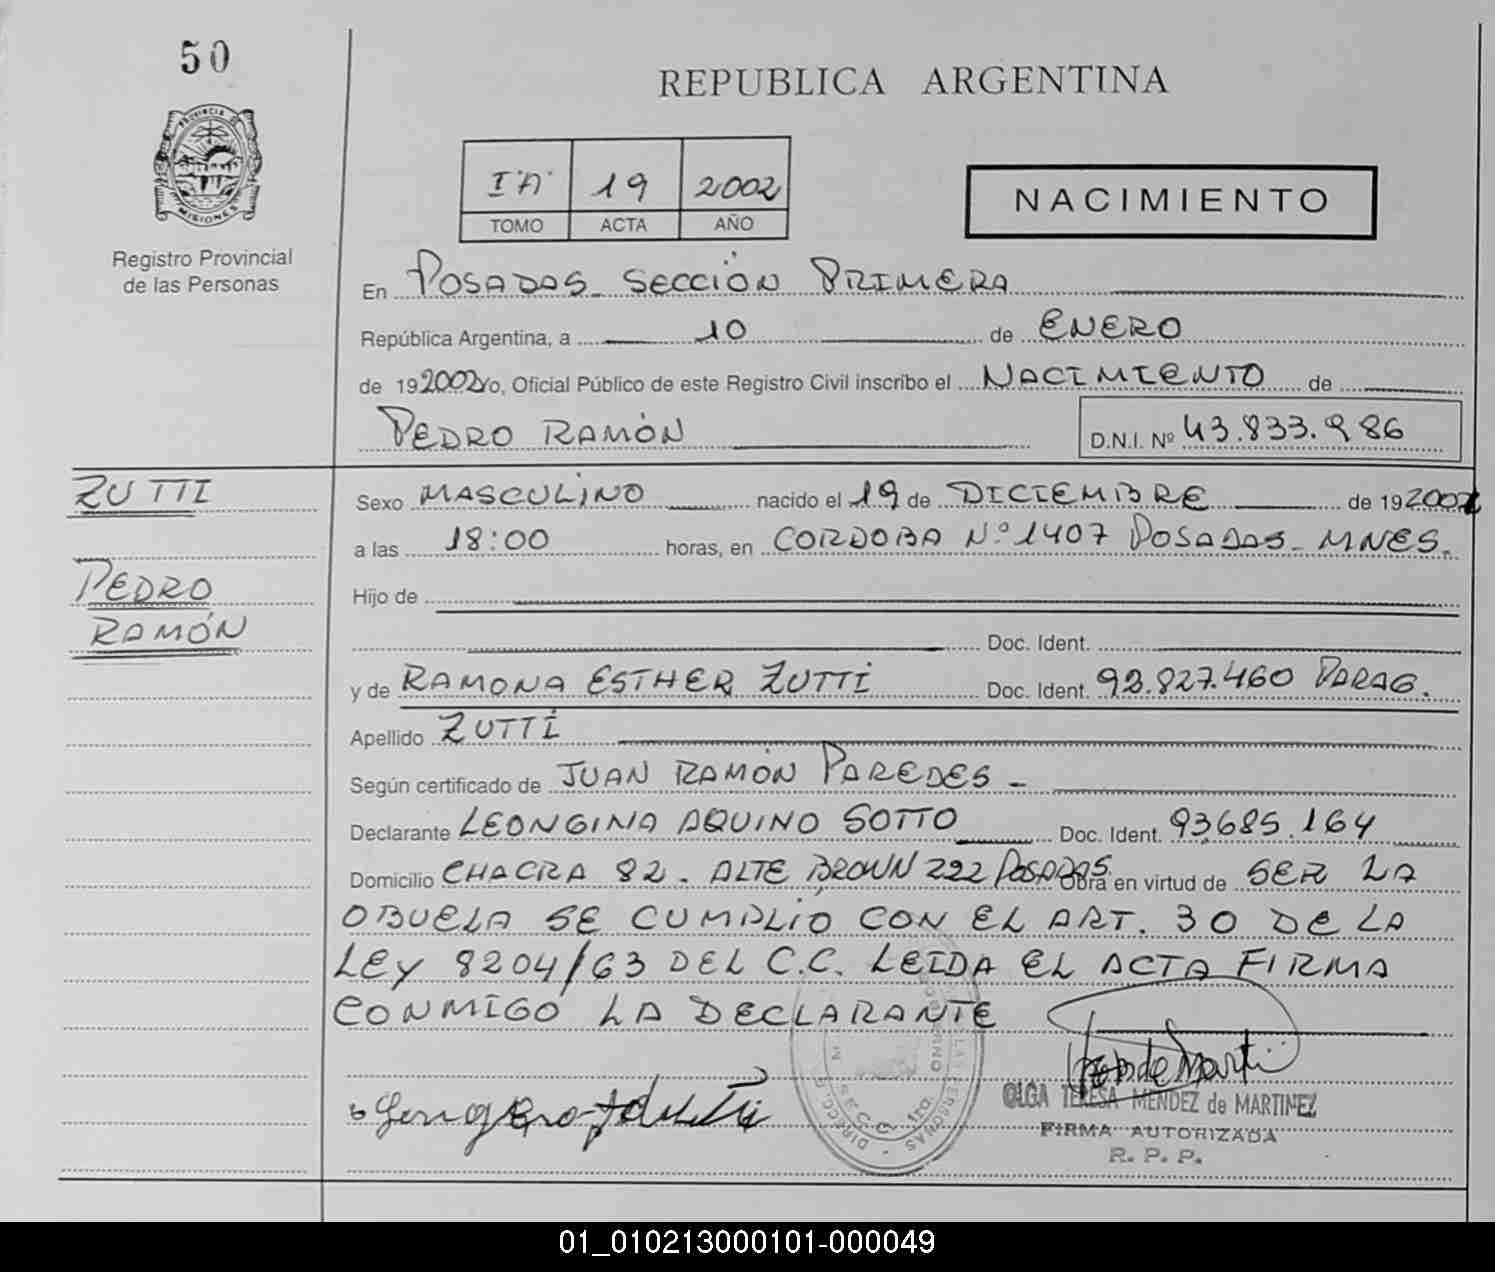 50
PROVINCIA DE
MISIONES
Registro Provincial
de las Personas
REPUBLICA ARGENTINA
I "A" 19 2002
TOMO ACTA AÑO
NACIMIENTO
En POSADAS - SECCIÓN PRIMERA
República Argentina, a 10 de ENERO
de 192002 yo, Oficial Público de este Registro Civil inscribo el NACIMIENTO de
PEDRO RAMÓN D.N.I. Nº 43.833.986
ZUTTI
PEDRO
RAMÓN
Sexo MASCULINO nacido el 19 de DICIEMBRE de 19 2001
a las 18:00 horas, en CORDOBA Nº 1407 POSADAS - MNES.
Hijo de
Doc. Ident.
y de RAMONA ESTHER ZUTTI Doc. Ident. 92.827.460 PARAG.
Apellido ZUTTI
Según certificado de JUAN RAMÓN PAREDES -
Declarante LEONGINA AQUINO SOTTO Doc. Ident. 93,685.164
Domicilio CHACRA 82. ALTE BROWN 222 POSADAS Obra en virtud de SER LA
OBUELA SE CUMPLIÓ CON EL ART. 30 DE LA
LEY 8204/63 DEL C.C. LEIDA EL ACTA FIRMA
CONMIGO LA DECLARANTE
OLGA TERESA MENDEZ de MARTINEZ
FIRMA AUTORIZADA
R. P. P.
01_010213000101-000049